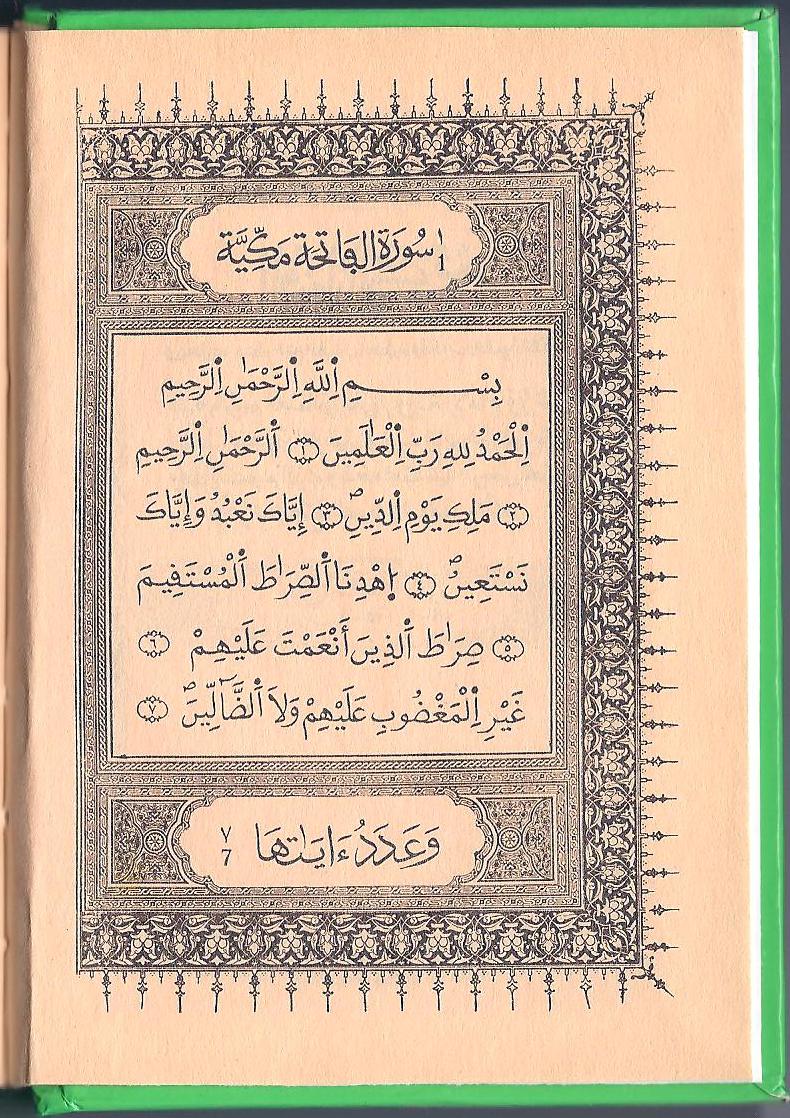 ١ سُورَةُ الفَاتِحَةِ مَكِّيَّة
1
بِسْمِ اِ۬للَّهِ اِ۬لرَّحْمَٰنِ اِ۬لرَّحِيمِ
اِ۬لْحَمْدُ لِلهِ رَبِّ اِ۬لْعَٰلَمِينَ ١ اَ۬لرَّحْمَٰنِ اِ۬لرَّحِيمِ
٢ مَلِكِ يَوْمِ اِ۬لدِّينِ ٣ إِيَّاكَ نَعْبُدُ وَإِيَّاكَ
نَسْتَعِينُ ٤ اِ۪هْدِنَا اَ۬لصِّرَٰطَ اَ۬لْمُسْتَفِيمَ
٥ صِرَٰطَ اَ۬لذِينَ أَنْعَمْتَ عَلَيْهِمْ ٦
غَيْرِ اِ۬لْمَغْضُوبِ عَلَيْهِمْ وَلَا اَ۬لضَّآلِّينَ ٧
وَعَدَدُ ءَايَٰتِهَا ٧
7